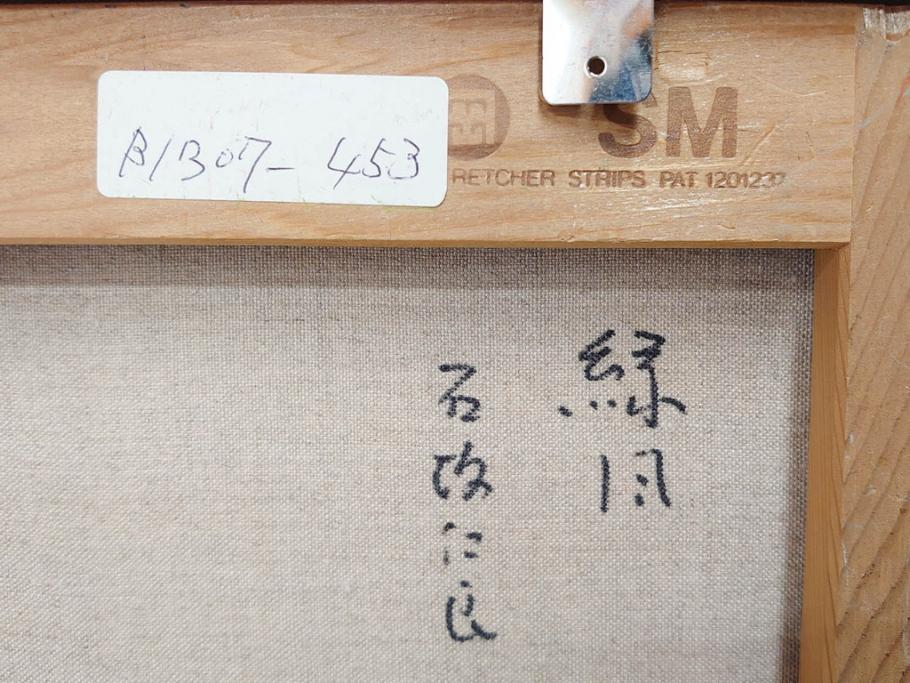 B1B07-453
SM
RETCHER STRIPS PAT 1201237
緑
石
仁良